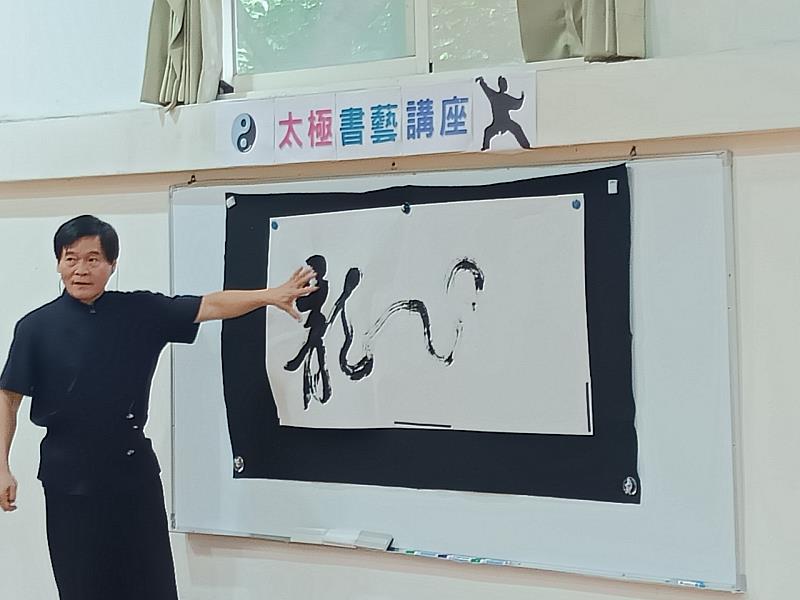 太極書藝講座
龍